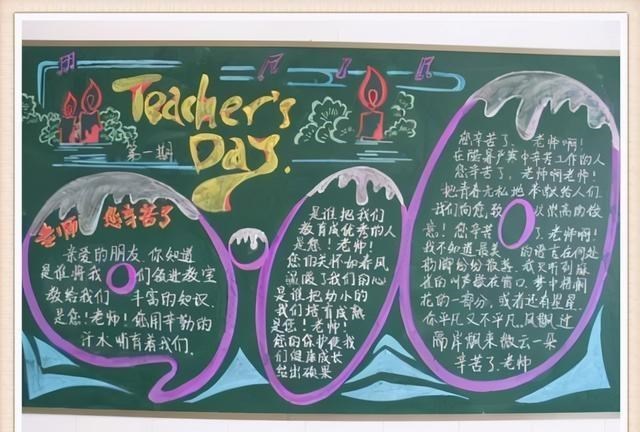 Teacher's
Day.
第一期
老师 您辛苦了
亲爱的朋友.你知道
是谁将我们领进教室
教给我们 丰富的知识
是您!老师!您用辛勤的
汗水 哺育着我们.
是谁把我们
教育成优秀的人
是您!老师!
您的关怀如春风
温暖了我们的心
是谁把幼小的
我们培育成熟
是您!老师!
您的保护使我
们健康成长
结出硕果
您辛苦了、老师啊!
在严寒中辛苦工作的人
您辛苦了、老师啊老师!
把青春无私地奉献给人们.
我们向您致以崇高的敬
意!您辛苦了、老师啊!
我不知道最美的语言在何处
纷纷散落、我只听到麻
雀的叫声散在窗口、梦中梧桐
花的一部分,或者还有星星
你平凡又不平凡、风飘过
隔岸飘来做云一朵
辛苦了、老师